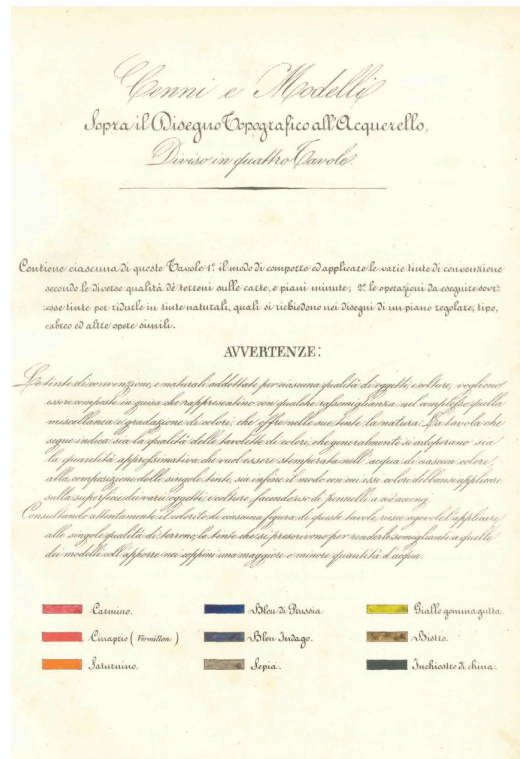 Cenni e Modelli
Sopra il Disegno Topografico all'Acquerello,
Diviso in quattro Tavole.
Contiene ciascuna di queste Tavole 1º. il modo di comporre ed applicare le varie tinte di convenzione
secondo le diverse qualità de terreni sulle carte, e piani minute; 2º. le operazioni da eseguire sovr'
esse tinte per ridurle in tinte naturali, quali si richiedono nei disegni di un piano regolare, tipo,
cabreo ed altre opere simili.
AVVERTENZE:
Le tinte di convenzione, e naturali addottate per ciascuna qualità di oggetti, e colture, vogliono
essere composte in guisa che rappresentino con qualche rassomiglianza nel complesso quella
miscellanea e gradazione di colori, che offre nelle sue tinte la natura. La tavola che
segue indica sia la qualità delle tavolette di colori, che generalmente si adoperano sia
la quantità approssimativa che vuol essere stemperata nell'acqua di ciascun colore,
alla composizione delle singole tinte, sia infine il modo con cui esse colore debbansi applicare
sulla superficie dei varii oggetti, e colture facendo so di pennelli a ciò acconcj.
Consultando attentamente il colorito di ciascuna figura di queste tavole, riesce agevole l'applicare
alle singole qualità di terreno, le tinte che si prescrivono per renderle somiglianti a quelle
dei modelli coll'apporre nei coppini una maggiore o minore quantità d'acqua.
Carmino.
Bleu di Prussia
Giallo gomma gutta.
Cinaprio (Vermillon.)
Bleu Indago.
Bistro.
Saturnino.
Sepia.
Inchiostro di china.